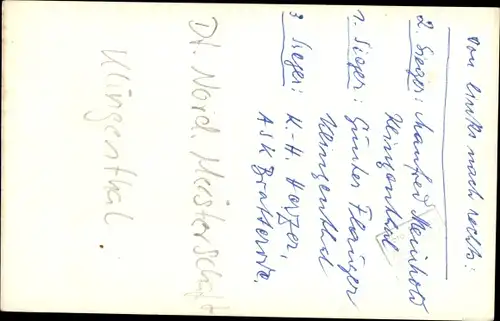 von links nach rechts:
2. Sieger: Manfred Meinhold
Klingenthal
1. Sieger: Günter Flauger
Klingenthal
3 Sieger: K.-H. Harzer,
ASK Brotterode.
Dt. Nord. Meisterschaft
Klingenthal